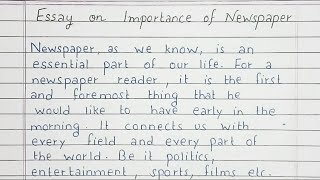 Essay on Importance of Newspaper
Newspaper, as we know, is an
essential part of our life. For a
newspaper reader, it is the first
and foremost thing that he
would like to have early in the
morning. It connects us with
every field and every part of
the world. Be it politics,
entertainment, sports, films etc.